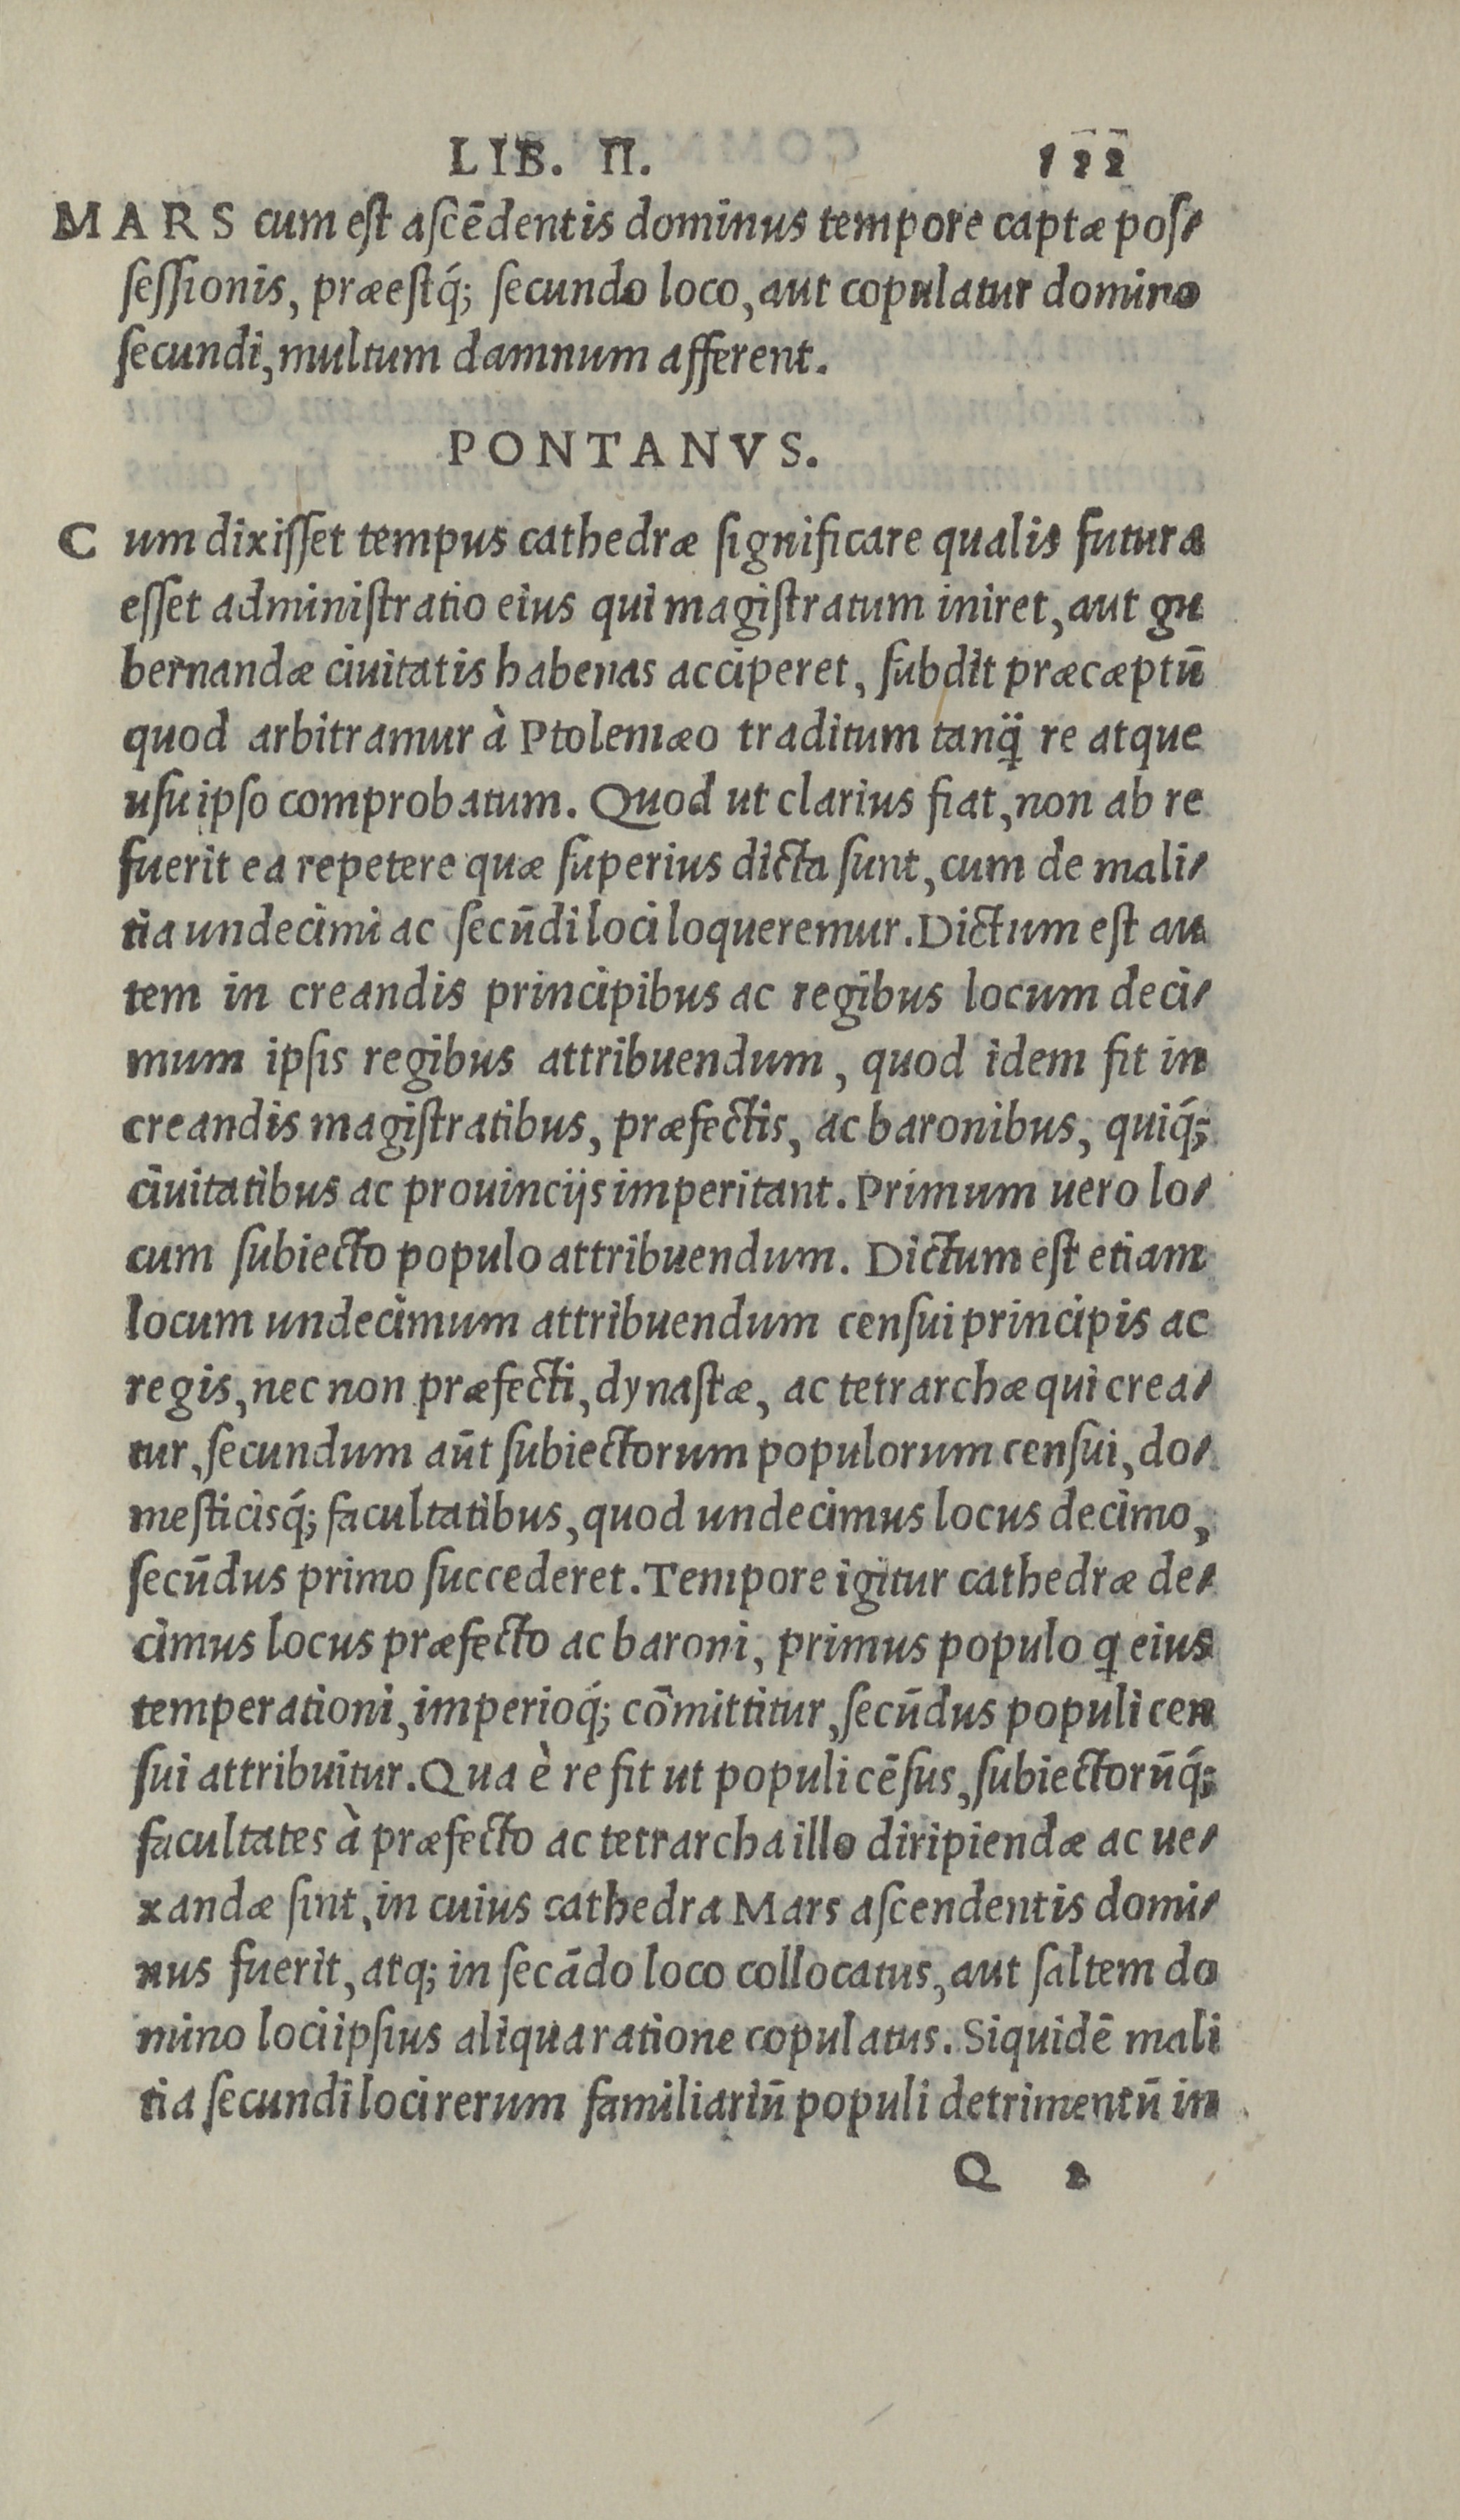 LIB. II. 122
MARS cum eſt aſcēdentis dominus tempore captæ poſ-
ſeſſionis, præeſtq́; ſecundo loco, aut copulatur domino
ſecundi, multum damnum afferent.
PONTANVS.
Cum dixiſſet tempus cathedræ ſignificare qualis futura
eſſet adminiſtratio eius qui magiſtratum iniret, aut gu
bernandæ ciuitatis habenas acciperet, ſubdit præcæptū
quod arbitramur à Ptolemæo traditum tanq̈ re atque
uſu ipſo comprobatum. Quod ut clarius fiat, non ab re
fuerit ea repetere quæ ſuperius dicta ſunt, cum de mali-
tia undecimi ac ſecūdi loci loqueremur. Dictum eſt au
tem in creandis principibus ac regibus locum deci-
mum ipſis regibus attribuendum, quod idem fit in
creandis magiſtratibus, præfectis, ac baronibus, quiq́;
ciuitatibus ac prouincijs imperitant. Primum uero lo-
cum ſubiecto populo attribuendum. Dictum eſt etiam
locum undecimum attribuendum cenſui principis ac
regis, nec non præfecti, dynaſtæ, ac tetrarchæ qui crea-
tur, ſecundum aūt ſubiectorum populorum cenſui, do-
meſticisq́; facultatibus, quod undecimus locus decimo,
ſecūdus primo ſuccederet. Tempore igitur cathedræ de-
cimus locus præfecto ac baroni, primus populo q eius
temperationi, imperioq́; cōmittitur, ſecūdus populi cen
ſui attribuitur. Qua è re fit ut populi cēſus, ſubiectorūq́;
facultates à præfecto ac tetrarcha illo diripiendæ ac ue-
xandæ ſint, in cuius cathedra Mars aſcendentis domi-
nus fuerit, atq; in ſecādo loco collocatus, aut ſaltem do
mino loci ipſius aliqua ratione copulatus. Siquidē mali
tia ſecundi loci rerum familiariū populi detrimentū in
Q 2